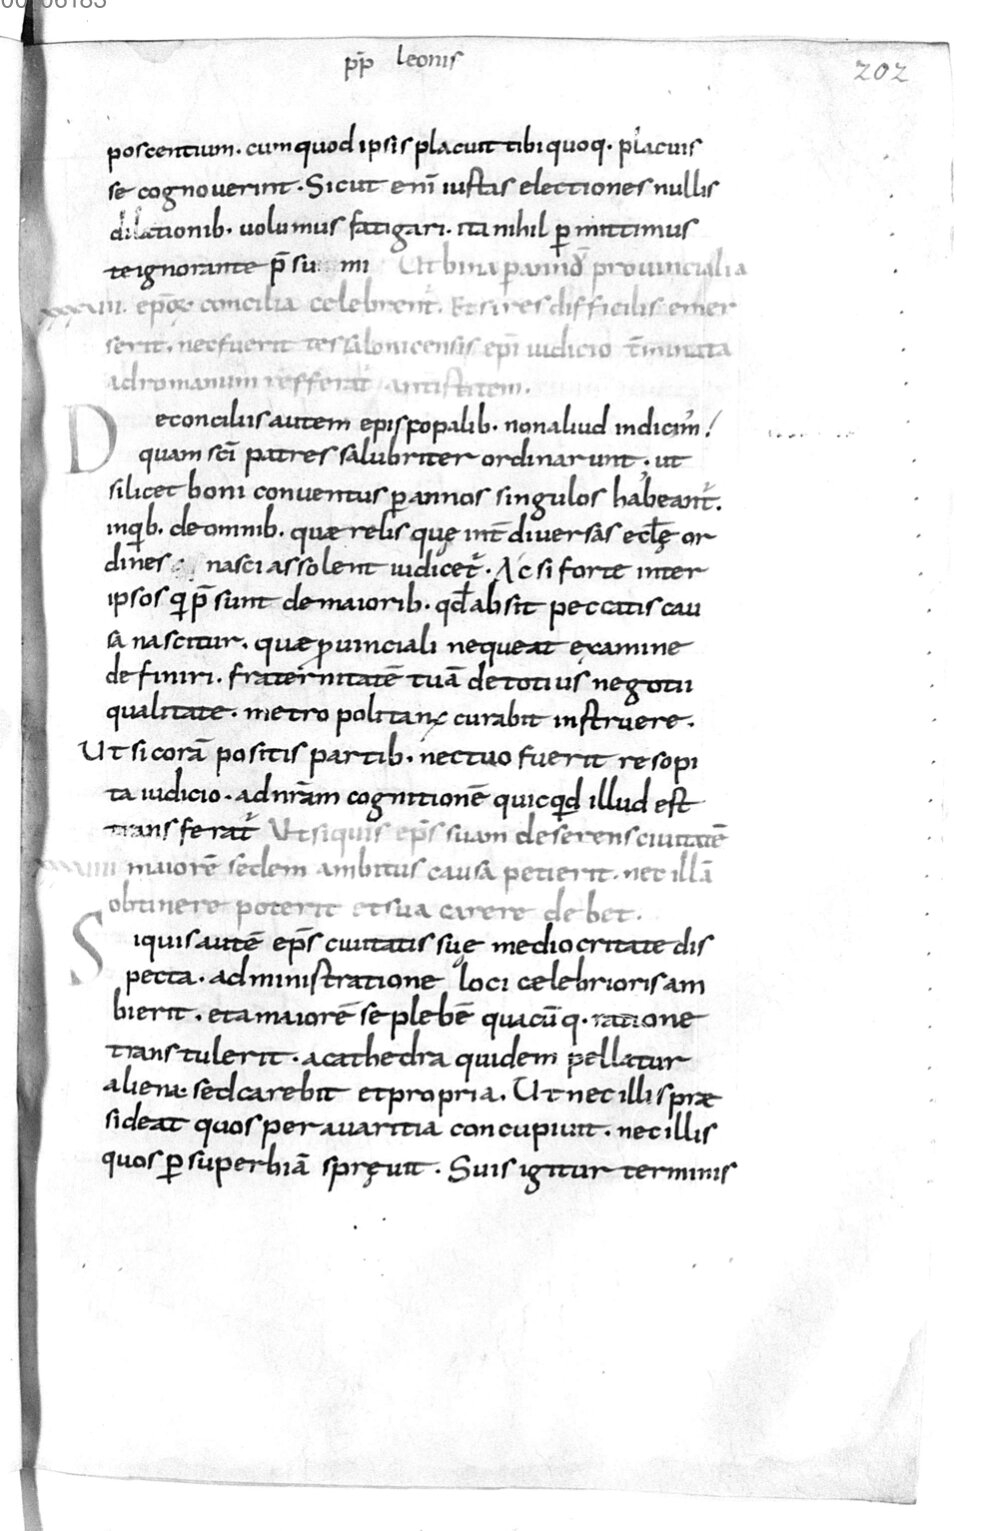 pp̄ leonis
202
poscentium. cumquod ipsis placuit tibi quoq. placuis
se cognouerint. Sicut enī iustas electiones nullis
dilationib. uolumus fatigari. ita nihil ꝑmittimus
te ignorante p̄su mi Ut bina ꝑ annū prouincialia
xxxiii. epōꝝ concilia celebrent᷑. Et si res difficilis emer
serit. nec fuerit tessalonicensis epī iudicio t̄minata
ad romanum refferat᷑ antistitem.
De conciliis autem episcopalib. non aliud indicim᷒!
quam scī patres salubriter ordinarunt. ut
silicet boni conuentus ꝑ annos singulos habeant᷑.
inqb. de omnib. quærelis quę int̄ diuersas eclę̄ or
dines nasci assolent iudicet᷑. Ac si forte inter
ipsos qi p̄sunt de maiorib. qd̄ absit peccatis cau
sa nascitur. quæ ꝓuinciali nequeat ęxamine
definiri. fraternitatē tuā de totius negotii
qualitate. metropolitanꝰ curabit instruere.
Ut si corā positis partib. nec tuo fuerit resopi
ta iudicio. ad nr̄am cognitionē quicqd illud est
transferat᷑ Ut siquis ep̄s suam deserens ciuitatē
xxxiiii maiorē sedem ambitus causa petierit. nec illā
obtinere poterit et sua carere debet.
Siquis autē ep̄s ciuitatis suę mediocritate dis
pecta. administratione loci celebrioris am
bierit. et a maiorē se plebē quacūq. ratione
transtulerit. a cathedra quidem pellatur
aliena sed carebit et propria. Ut nec illis præ
sideat quos per auaritia concupiuit. nec illis
quos ꝑ superbiā spręuit. Suis igitur terminis